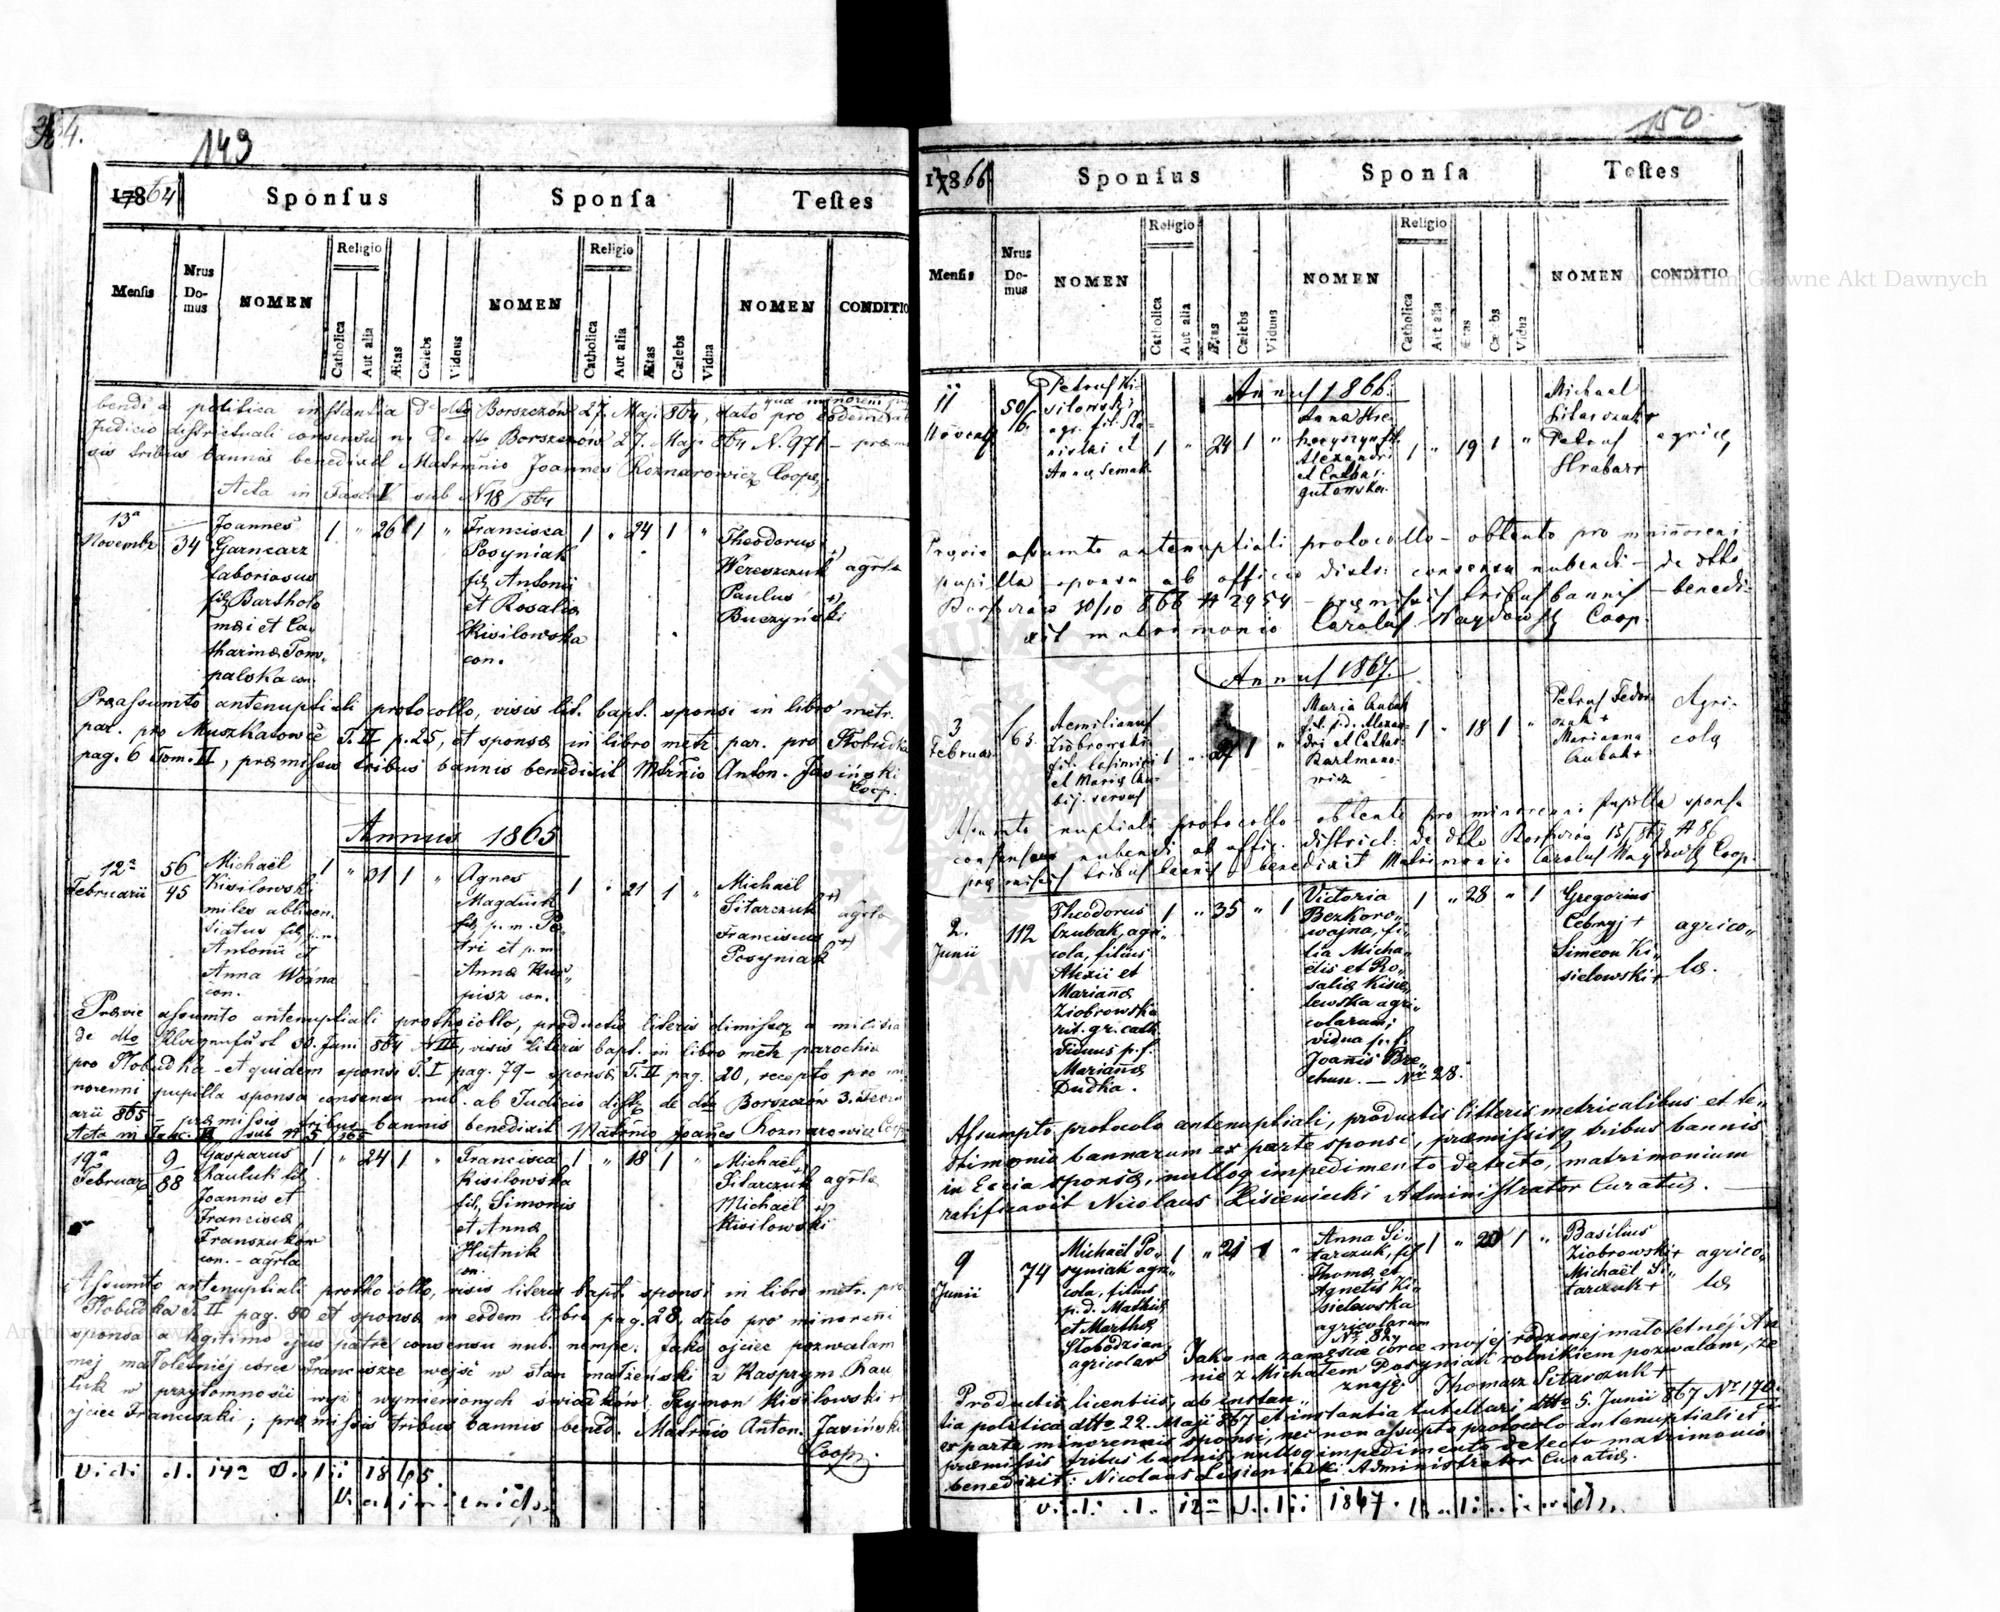 364.
149
17864
Sponſus
Sponſa
Teſtes
Menſis
Nrus Domus
NOMEN
Religio
Catholica
Aut alia
Ætas
Cælebs
Viduus
NOMEN
Religio
Catholica
Aut alia
Ætas
Cælebs
Vidua
NOMEN
CONDITIO
bendi a politica instantia de dto Borszczów 27. Maji 864, dato pro eodem
qua minoreni
Judicio districtuali consensu n. de dto Borszczów 27. Maji 864 N. 971 – præmis
sis tribus bannis benedixit Matrimnio Joannes Roznarowicz Coop.
Acta in Fasc. V sub N 18/864
13ª
Novembr
34
Joannes
Garncarz
laboriosus
fil. Bartholo
mæi et Ca
tharinæ Tom
palska con.
1 " 26 1 "
Francisca
Posyniak
fil. Antonii
et Rosalia
Kisilowska
con.
1 " 24 1 "
Theodorus
Wereszczuk +)
Paulus
Buczyński +)
agrla
Præassumto antenuptiali protocollo, visis lit. bapt. sponsi in libro metr.
par. pro Muszkatowce T. II p. 25, et sponsæ in libro metr. par. pro Słobudka
pag. 6 Tom. II, præmissis tribus bannis benedixit Mtrmnio Anton. Jasiński
Coop.
Annus 1865
12ª
Februarii
56
45
Michaël
Kisilowski
miles ablicen
tiatus fil. p.m.
Antonii et
Anna Woźna
con.
1 " 31 1 "
Agnes
Magdiuk
fil. p. m. Pe
tri et p. m.
Annæ Kus
pisz con.
1 " 21 1 "
Michaël
Sitarczuk +)
Franciscus
Posyniak +)
agrla
Prævie assumto antenuptiali prothocollo, productis literis dimissor. a militia
de dto Klagenfurt 30. Juni 864 N III, visis literis bapt. in libro metr. parochiæ
pro Słobudka – et quidem sponsi T. I pag. 79 – sponsæ T. II pag. 20, recepto pro mi
norenni pupilla sponsa consensu nub. ab Judicio distr. de dto Borszczów 3. Febru
arii 865 – præmissis tribus bannis benedixit Matrmnio Joañes Roznarowicz Coop
Acta in Fasc. sub N 5/865
19ª
Februar
9
88
Gasparus
Rauluk fil.
Joannis et
Franciscæ
Franszuków
con. – agrla
1 " 24 1 "
Francisca
Kisilowska
fil. Simonis
et Annæ
Hutnik
con.
1 " 18 1 "
Michaël
Sitarczuk +)
Michaël
Kisilowski +)
agrla
Assumto antenuptiali prothocollo, visis literis bapt. sponsi in libro metr. pro
Słobudka T. II pag. 80 et sponsæ in eodem libro pag. 28, dato pro minoreñi
sponsa a legitimo ejus patre consensu nub. nempe: Jako ojciec pozwalam
mej małoletniéj córce Franciszce wejść w stan małżeński z Kasprym Rau
luk w przytomności wyż wymienionych świadków; Szymon Kisilowski +
ojciec Franciszki; præmissis tribus bannis bened. Matrmnio Anton. Jasiński
Coop.
Vidi d. 14ª Julii 1865.
150
17866
Sponſus
Sponſa
Teſtes
Menſis
Nrus Domus
NOMEN
Religio
Catholica
Aut alia
Ætas
Cælebs
Viduus
NOMEN
Religio
Catholica
Aut alia
Ætas
Cælebs
Vidua
NOMEN
CONDITIO
Annus 1866.
11
Novemb
50/
6.
Petrus Ki
silowski
agr. fil. Sta
nislai et
Annæ Semak
1 " 24 1 "
Anna Hre
horyszyn fil.
Alexandri
et Catha.
Gutowska
1 " 19 1 "
Michael
Sitarczuk+
Petrus
Hrabar+
agricolæ
Prævie assumto antenuptiali protocollo – obtento pro minoreni
pupilla sponsa ab officio distr. consensu nubendi – de dtto
Borszczów 30/10 866 # 2954 – præmissis tribus bannis – benedi-
xit matrimonio Carolus Naydowski Coop.
Annus 1867.
3
Februar
63.
Aemilianus
Ziobrowski
fil. Casimiri
et Mariæ Cu
bij. servus
1 " 27 1 "
Maria Czubak
fil. p. d. Alexan
dri et Cathar.
Bartmano
wicz
1 " 18 1 "
Petrus Fedor
czuk +
Marianna
Czubak+
Agri-
colæ
Assumto nuptiali protocollo – obtento pro minorenni pupilla sponsa
consensu nubendi ab offic. district. de dtto Borszczów 15/1 867 # 86
præmissis tribus bannis benedixit Matrimonio Carolus Naydowski Coop.
2.
Junii
112
Theodorus
Czubak, agri
cola, filius
Alexii et
Mariañæ
Ziobrowska
rit. gr. cath.
Viduus p. f.
Mariañæ
Dudka.
1 " 35 " 1
Victoria
Bezkoro
wajna, fi
lia Micha
ëlis et Ro
saliæ Kisie
lewska agri
colarum;
vidua p. f.
Joanis Bre
chun. – Nro 28.
1 " 28 " 1
Gregorius
Cebryj +
Simeon Ki
sielowski +
agrico
læ.
Assumpto protocolo antenuptiali, productis litteris metricalibus et te
stimonio bannorum ex parte sponsi, præmissisq tribus bannis
in Eccia sponsæ, nulloq impedimento detecto, matrimonium
ratificavit Nicolaus Lisieniecki Administrator Curatus.
9
Junii
74
Michaël Po
syniak agri
cola, filius
p. d. Mathiæ
et Marthæ
Słobodzian,
agricolar
1 " 21 1 "
Anna Si
tarczuk, fil
Thomæ et
Agnetis Ki
sielewska
agricolarum
Nr. 87
1 " 20 1 "
Basilius
Ziobrowski+
Michaël Si
tarczuk +
agrico
læ
Jako na zamęście córce mojej rodzonej małoletnéj An
nie z Michałem Posyniak rolnikiem pozwalam, ze
znaję. Thomasz Sitarczuk +
Productis licentiis, ab instan
tia politica dtto 22. Maji 867 et instantia tutellari dtto 5. Junii 867 Nr 170.
ex parte minorennis sponsi, nec non assupto protocolo antenuptiali et
præmissis tribus bannis, nulloq impedimento detecto matrimonio
benedixit: Nicolaus Lisieniecki Administrator Curatus.
Vidi d. 12ª Julii 1867.
Archiwum Główne Akt Dawnych
Archiwum Główne Akt Dawnych